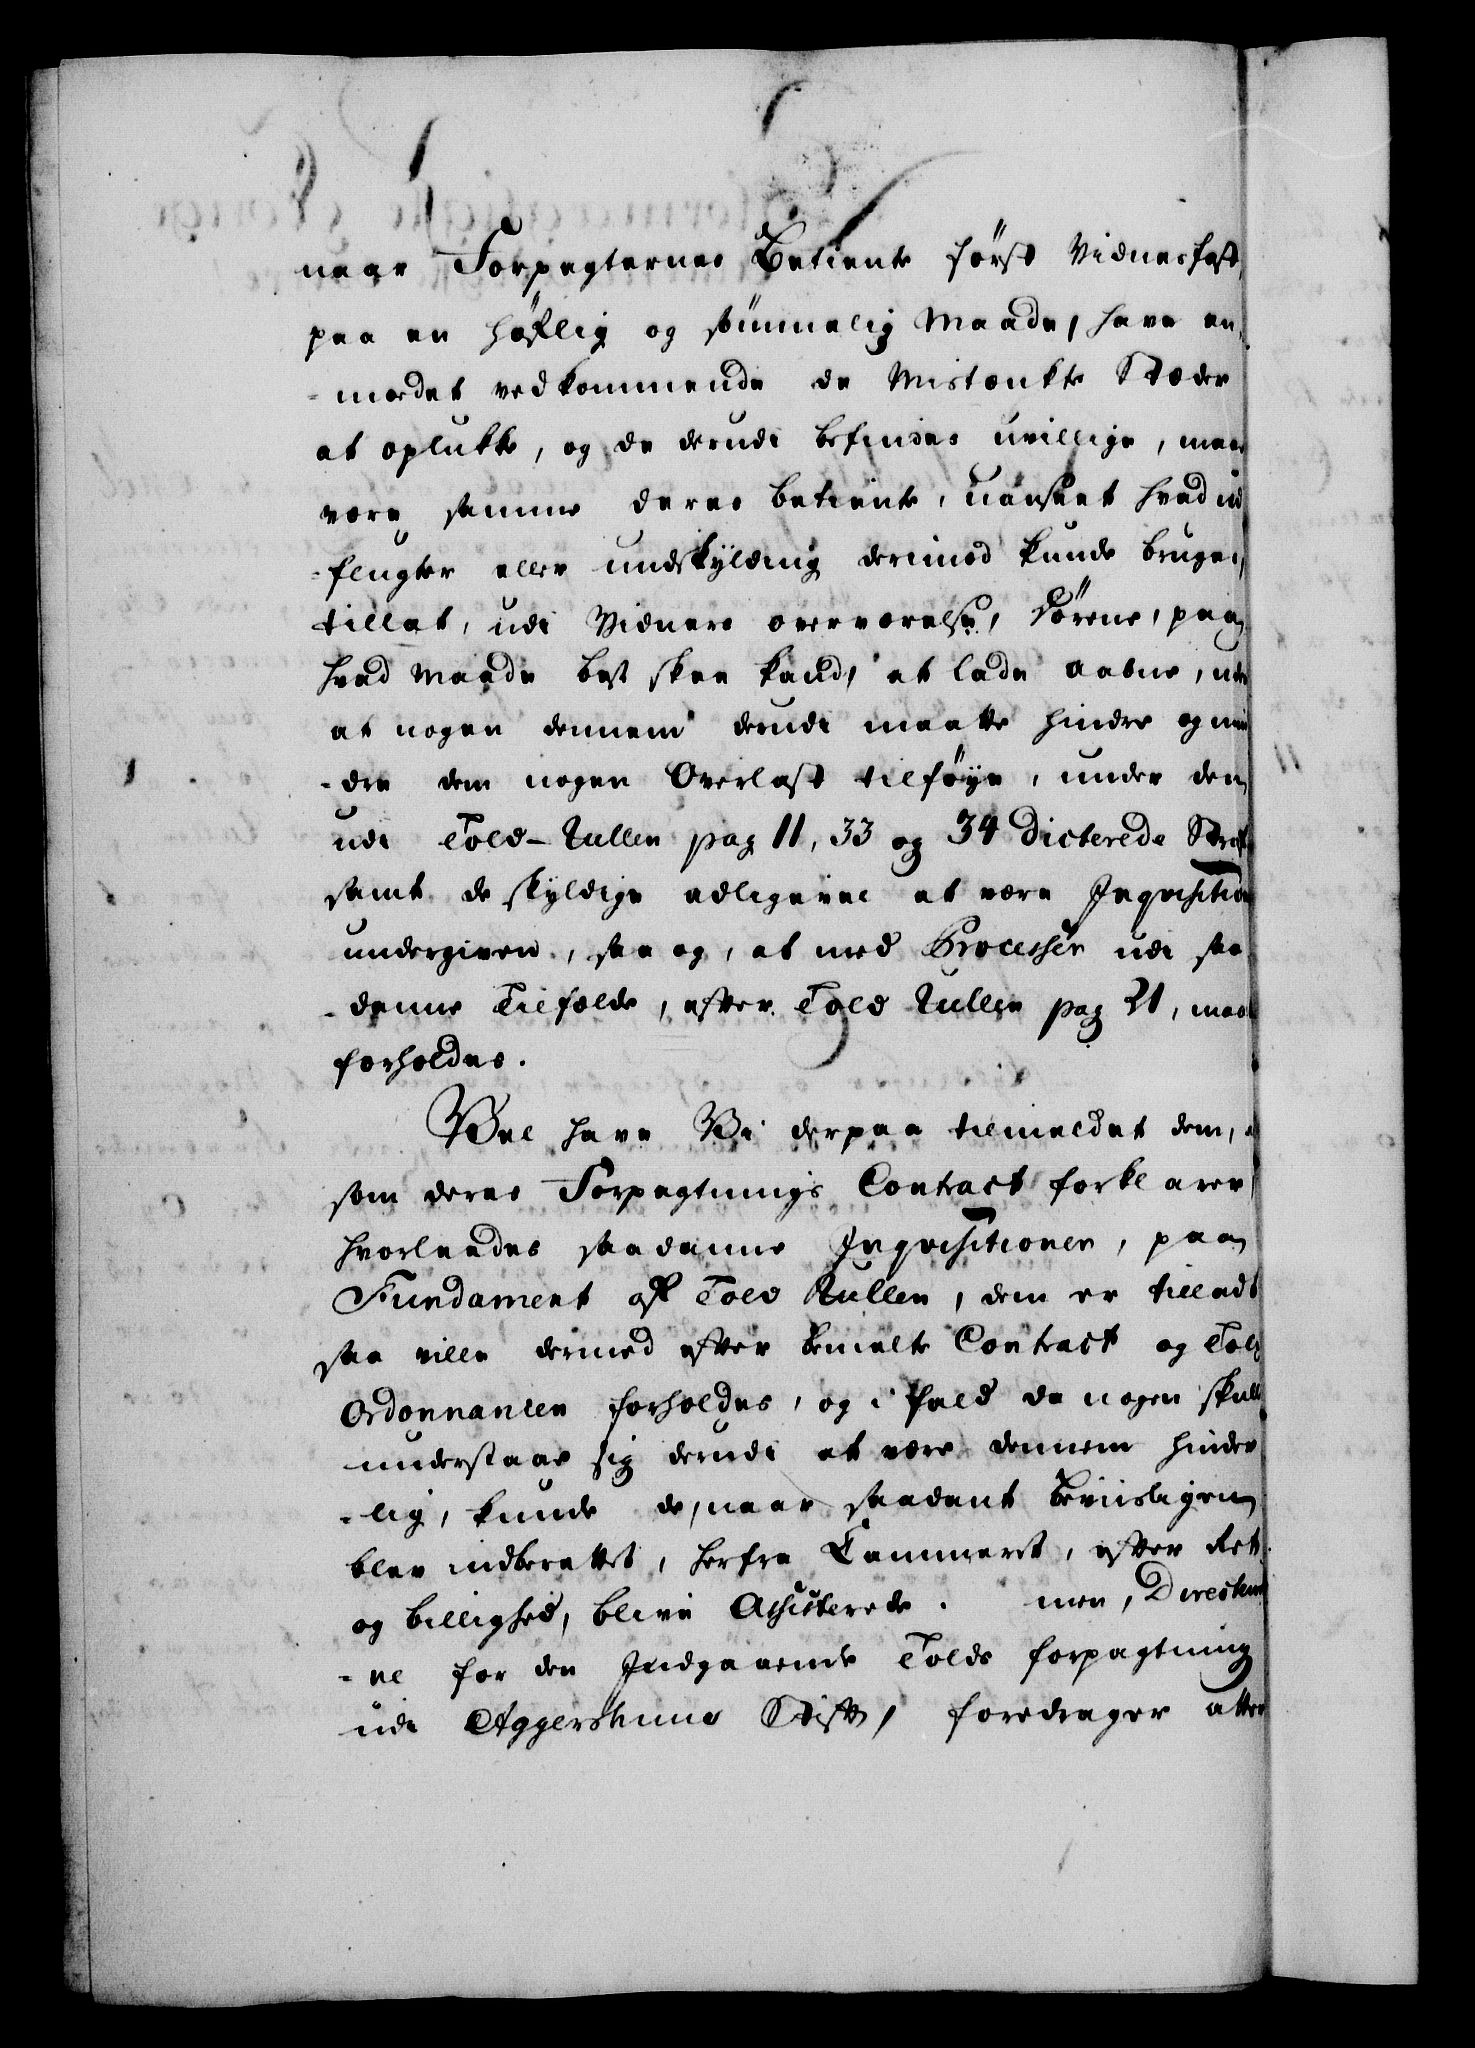 naar Forpagternes Betiente først Vidnesfast,
paa en høflig og sømmelig Maade, have an-
- modet vedkommende de Mistænkte Stæder
at oplukke, og de derudi befindes uvillige, maae
være samme deres betiente, uanseet hvad ud
- flugter eller undskylding derimod kunde bruges,
tillat, udi Vidners overværelse, Dørene, paa
hvad Maade best skee kand, at lade aabne, uden
at nogen dennem derudi maatte hindre og min
- dre dem nogen Overlast tilføye, under den
udi Told-Rullen pag 11, 33 og 34 Dicterede Straf
samt de skyldige adligevel at være Inqvisition
undergiven, saa og, at med Processer udi saa
- danne Tilfælde, efter Told Rullen pag 21, maae
forholdes.
Vel have Vi derpaa tilmeldet dem,
som deres Forpagtnings Contract forklarer
hvorleedes saadanne Inqvisitioner, paa
Fundament af Told Rullen, dem er tilladt
saa ville dermed efter bemelte Contract og Told
Ordonnancen forholdes, og i fald da nogen skulle
understaae sig derudi at være dennem hinder
- lig, kunde de, naar saadant beviisligen
blev indberettet, herfra Cammeret, efter Ret
og billighed, blive Assisterede. men, Directeur
- ne for den Indgaaende Tolds forpagtning
udi Aggershuus Stift, foredrager atter